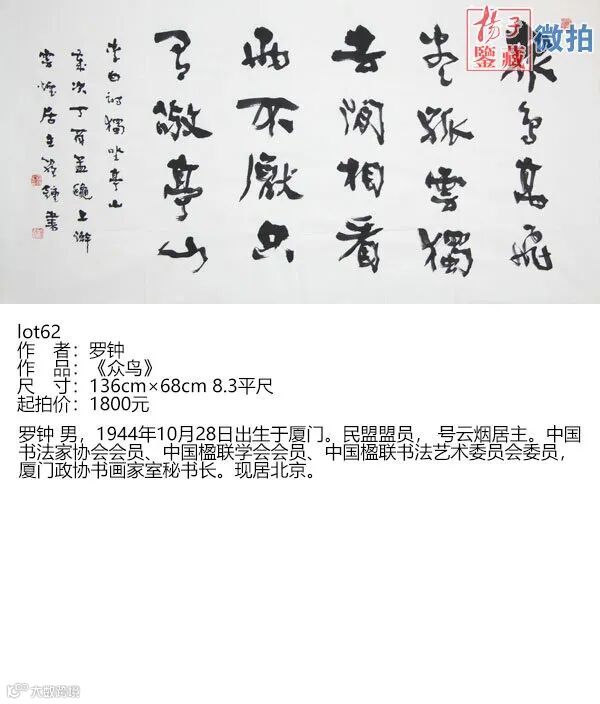 杨子
鑒藏
微拍
衆鸟高飛
尽孤雲獨
去闲相看
两不厭只
有敬亭山
李白诗獨坐亭山
歲次丁酉孟龝上澣
雲煙居主羅鍾書
lot62
作　者：罗钟
作　品：《众鸟》
尺　寸：136cm×68cm 8.3平尺
起拍价：1800元
罗钟 男，1944年10月28日出生于厦门。民盟盟员， 号云烟居主。中国
书法家协会会员、中国楹联学会会员、中国楹联书法艺术委员会委员，
厦门政协书画家室秘书长。现居北京。
大数跨境